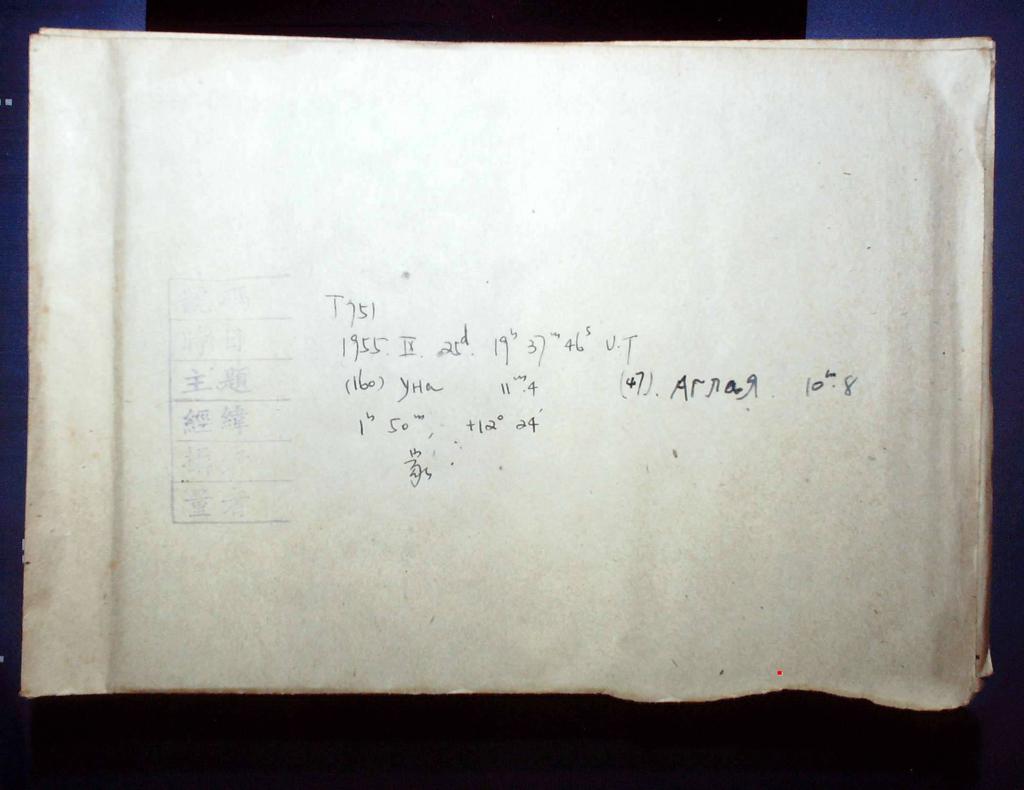 號碼
時日
主題
經緯
攝者
量者
T751
1955. IX. 25ᵈ. 19ʰ 37ᵐ 46ˢ U.T
(160) Уна 11ᵐ.4 (47). Аглая 10ᵐ.8
1ʰ 50ᵐ, +12° 24′